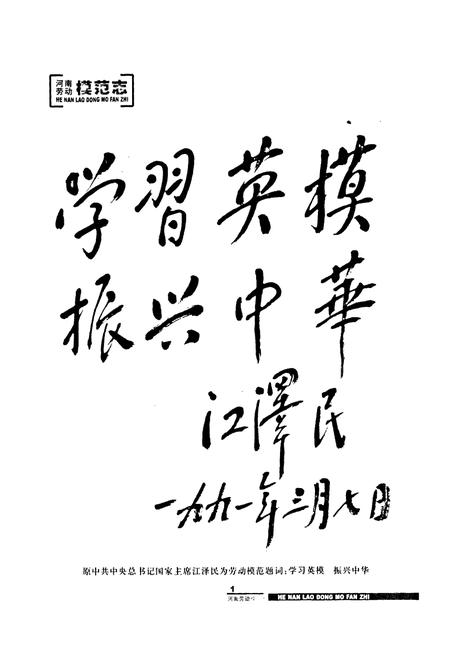 河南
劳动 模范志
HE NAN LAO DONG MO FAN ZHI
学習英模
振兴中華
江澤民
一九九一年三月七日
原中共中央总书记国家主席江泽民为劳动模范题词:学习英模 振兴中华
1
HE NAN LAO DONG MO FAN ZHI